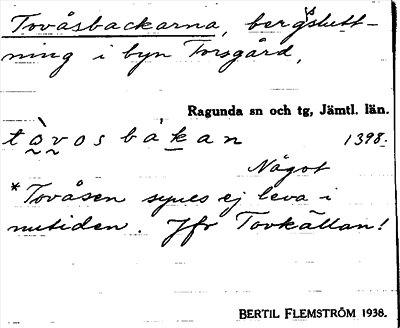 Tovåsbackarna, bergslutt-
ning i byn Torsgård,
Ragunda sn och tg, Jämtl. län.
tòvosbákan 1398.
Något
*Tovåsen synes ej leva i
nutiden. Jfr Tovkällan!
BERTIL FLEMSTRÖM 1938.